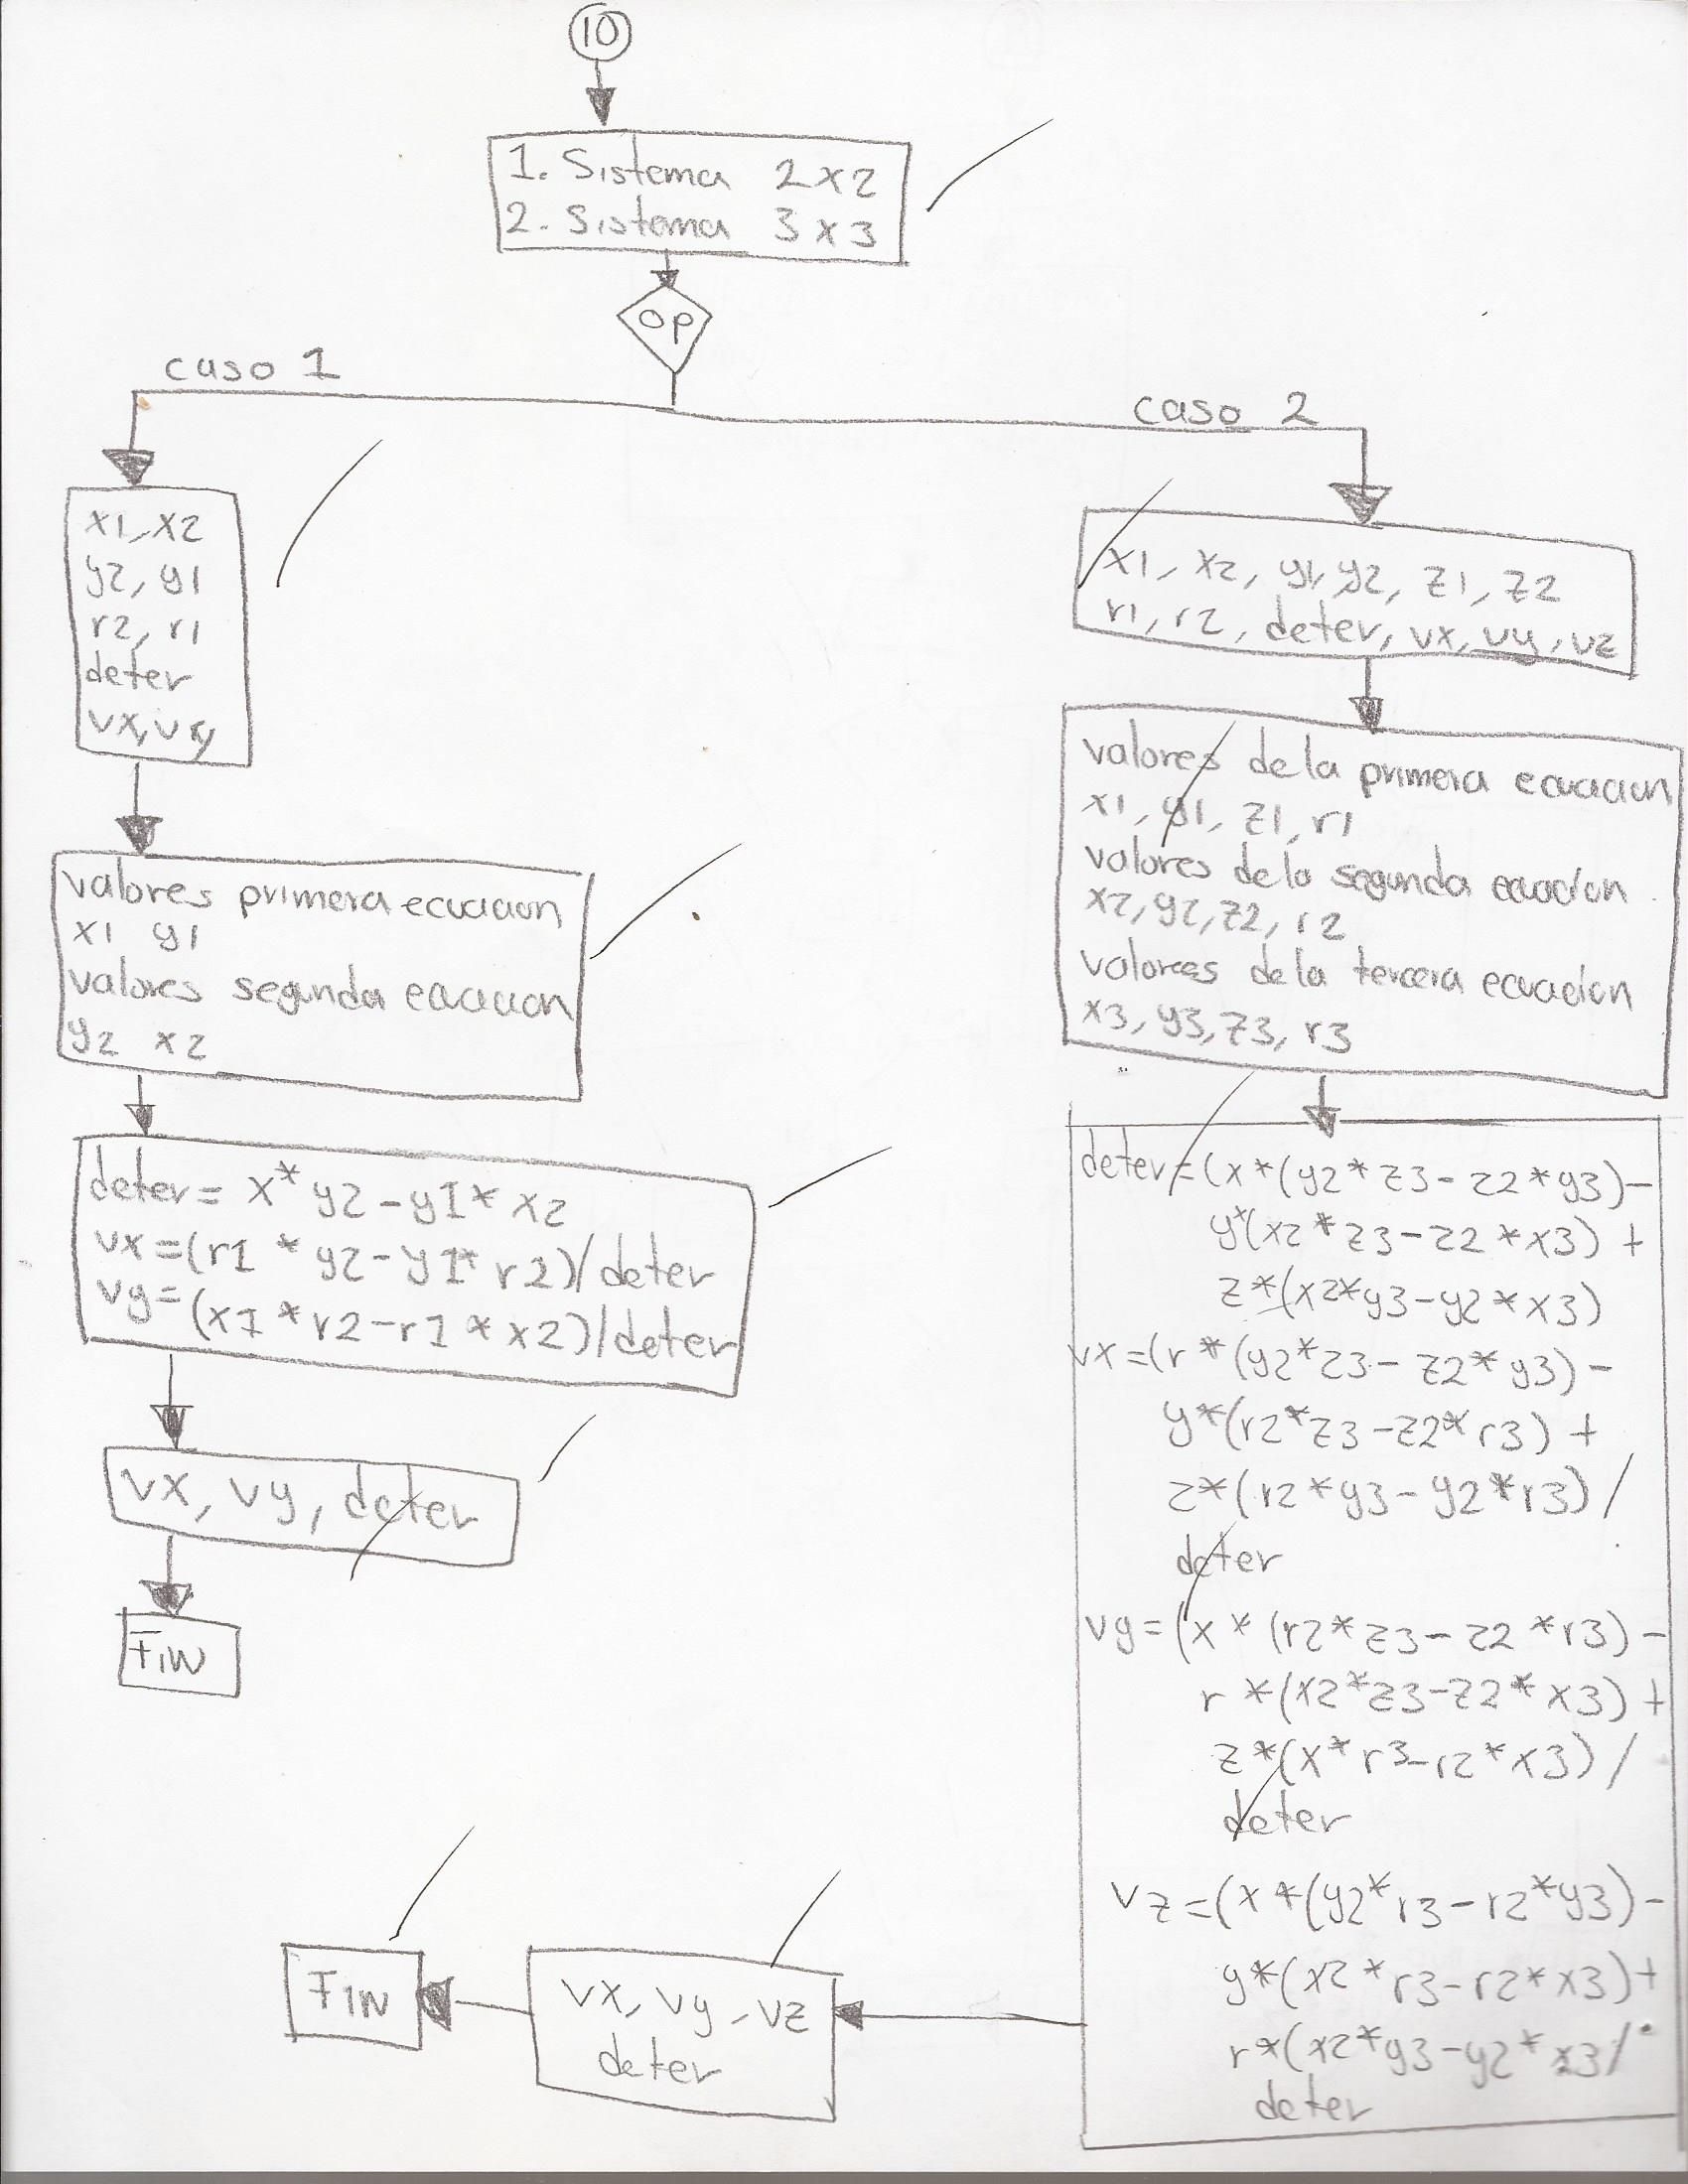 10
1. Sistema 2x2
2. Sistema 3x3
op
caso 1
caso 2
x1, x2
y2, y1
r2, r1
deter
vx, vy
valores primera ecuacion
x1 y1
valores segunda ecuacion
y2 x2
deter= x*y2-y1*x2
vx=(r1*y2-y1*r2)/deter
vy=(x1*r2-r1*x2)/deter
vx, vy, deter
Fin
x1, x2, y1, y2, z1, z2
r1, r2, deter, vx, vy, vz
valores de la primera ecuacion
x1, y1, z1, r1
valores de la segunda ecuacion
x2, y2, z2, r2
valores de la tercera ecuacion
x3, y3, z3, r3
deter=(x*(y2*z3-z2*y3)-
y*(x2*z3-z2*x3)+
z*(x2*y3-y2*x3)
vx=(r*(y2*z3-z2*y3)-
y*(r2*z3-z2*r3)+
z*(r2*y3-y2*r3)/
deter
vy=(x*(r2*z3-z2*r3)-
r*(x2*z3-z2*x3)+
z*(x*r3-r2*x3)/
deter
vz=(x*(y2*r3-r2*y3)-
y*(x2*r3-r2*x3)+
r*(x2*y3-y2*x3/
deter
vx, vy, vz
deter
Fin